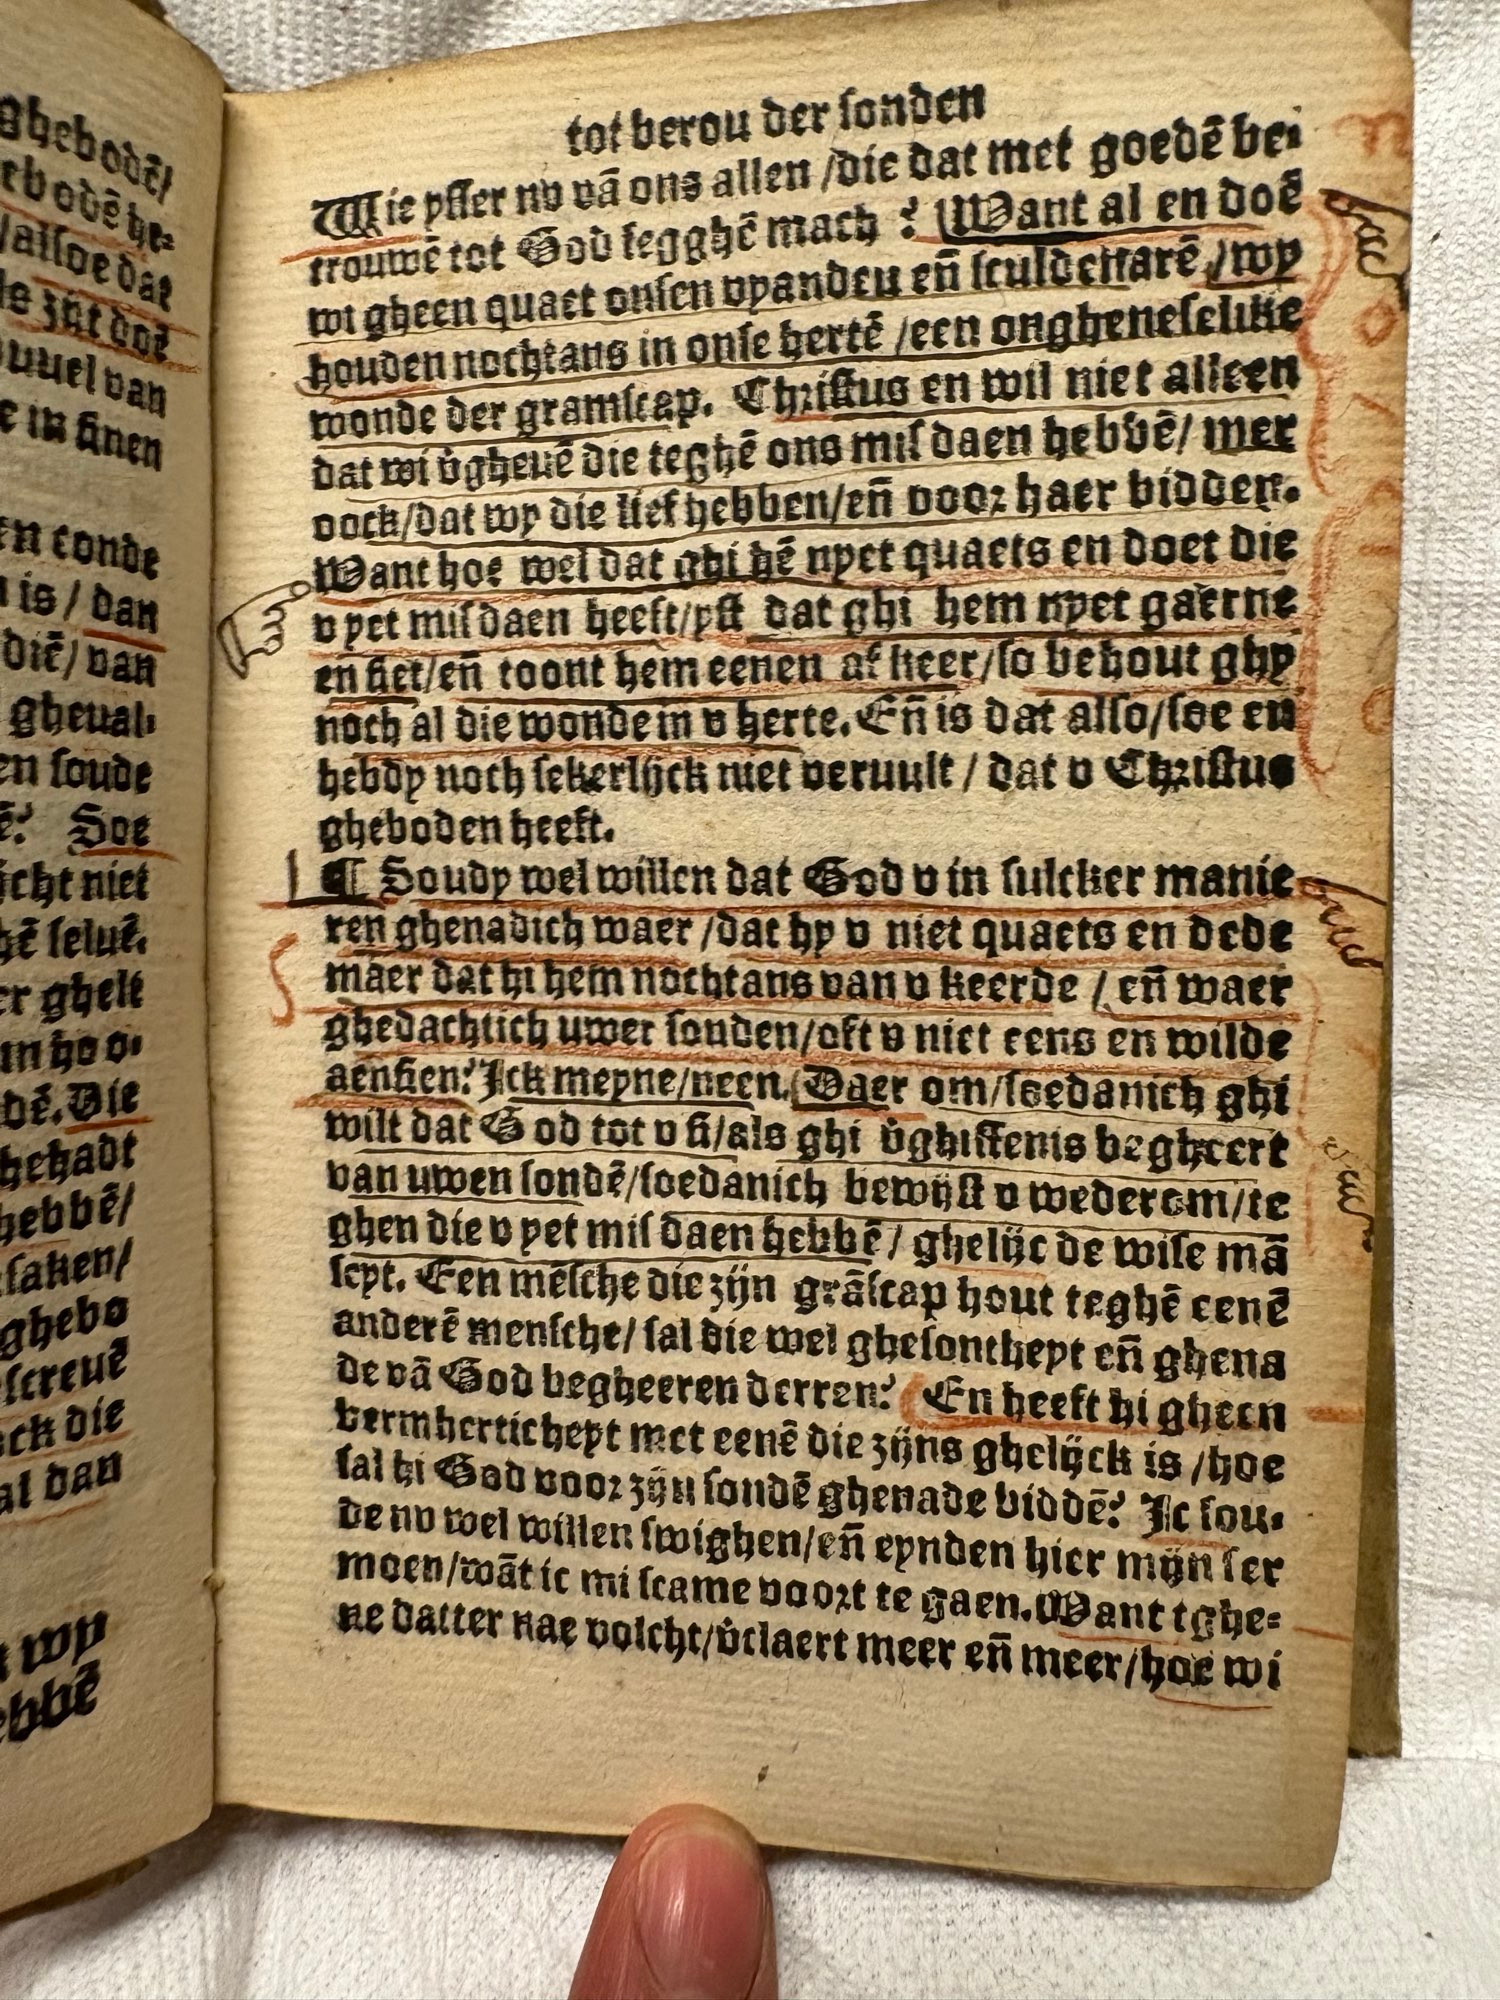 ghebodē/
ebodē he⸗
/alsoe dat
le zijt doē
uuel van
e in sinen
en conde
is / dan
diē/ van
gheual⸗
en soude
ē? Soe
icht niet
hē seluē.
er ghelt
in ho o⸗
dē. Die
hehadt
hebbē/
saken/
ghebo
screuē
ock die
al dan
wp
ebbē
tot berou der sonden
Wie psser nv vā ons allen /die dat met goedē be⸗
trouwē tot God segghē mach ? Want al en doē
wi gheen quaet onsen vpanden eñ sculdenarē /wp
houden nochtans in onse hertē /een onghenefelike
wonde der gramscap. Christus en wil niet alleen
dat wi v̉gheuē die teghē ons mis daen hebbē/ mer
oock/dat wp die lief hebben/eñ voor haer bidden.
Want hoe wel dat ghi hē npet quaets en doet die
v pet misdaen heeft/pst dat ghi hem npet gaerne
en siet/eñ toont hem eenen af keer/so behout ghp
noch al die wonde in v herte. Eñ is dat also/soe en
hebdp noch sekerlijck niet veruult / dat v Christus
gheboden heeft.
¶ Soudp wel willen dat God v in sulcker manie
ren ghenadich waer /dat hp v niet quaets en dede
maer dat hi hem nochtans van v keerde / eñ waer
ghedachtich uwer sonden/oft v niet eens en wilde
aensien? Ick mepne/neen. Daer om/soedanich ghi
wilt dat God tot v si/als ghi v̉ghiffenis begheert
van uwen sondē/soedanich bewijst v wederom/te
ghen die v pet mis daen hebbē/ ghelijc de wise mā
scpt. Een mēsche die zijn grāscap hout teghē eenē
anderē mensche/ sal die wel ghesonthept eñ ghena
de vā God begheeren derren? En heeft hi gheen
bermhertichept met eenē die zijns ghelijck is /hoe
sal hi God voor zijn sondē ghenade biddē? Ic sou⸗
de nv wel willen swighen/eñ epnden hier mijn ser
moen/wāt ic mi scame voort te gaen. Want tghe⸗
ne datter nae volcht/v̉claert meer eñ meer/hoe wi